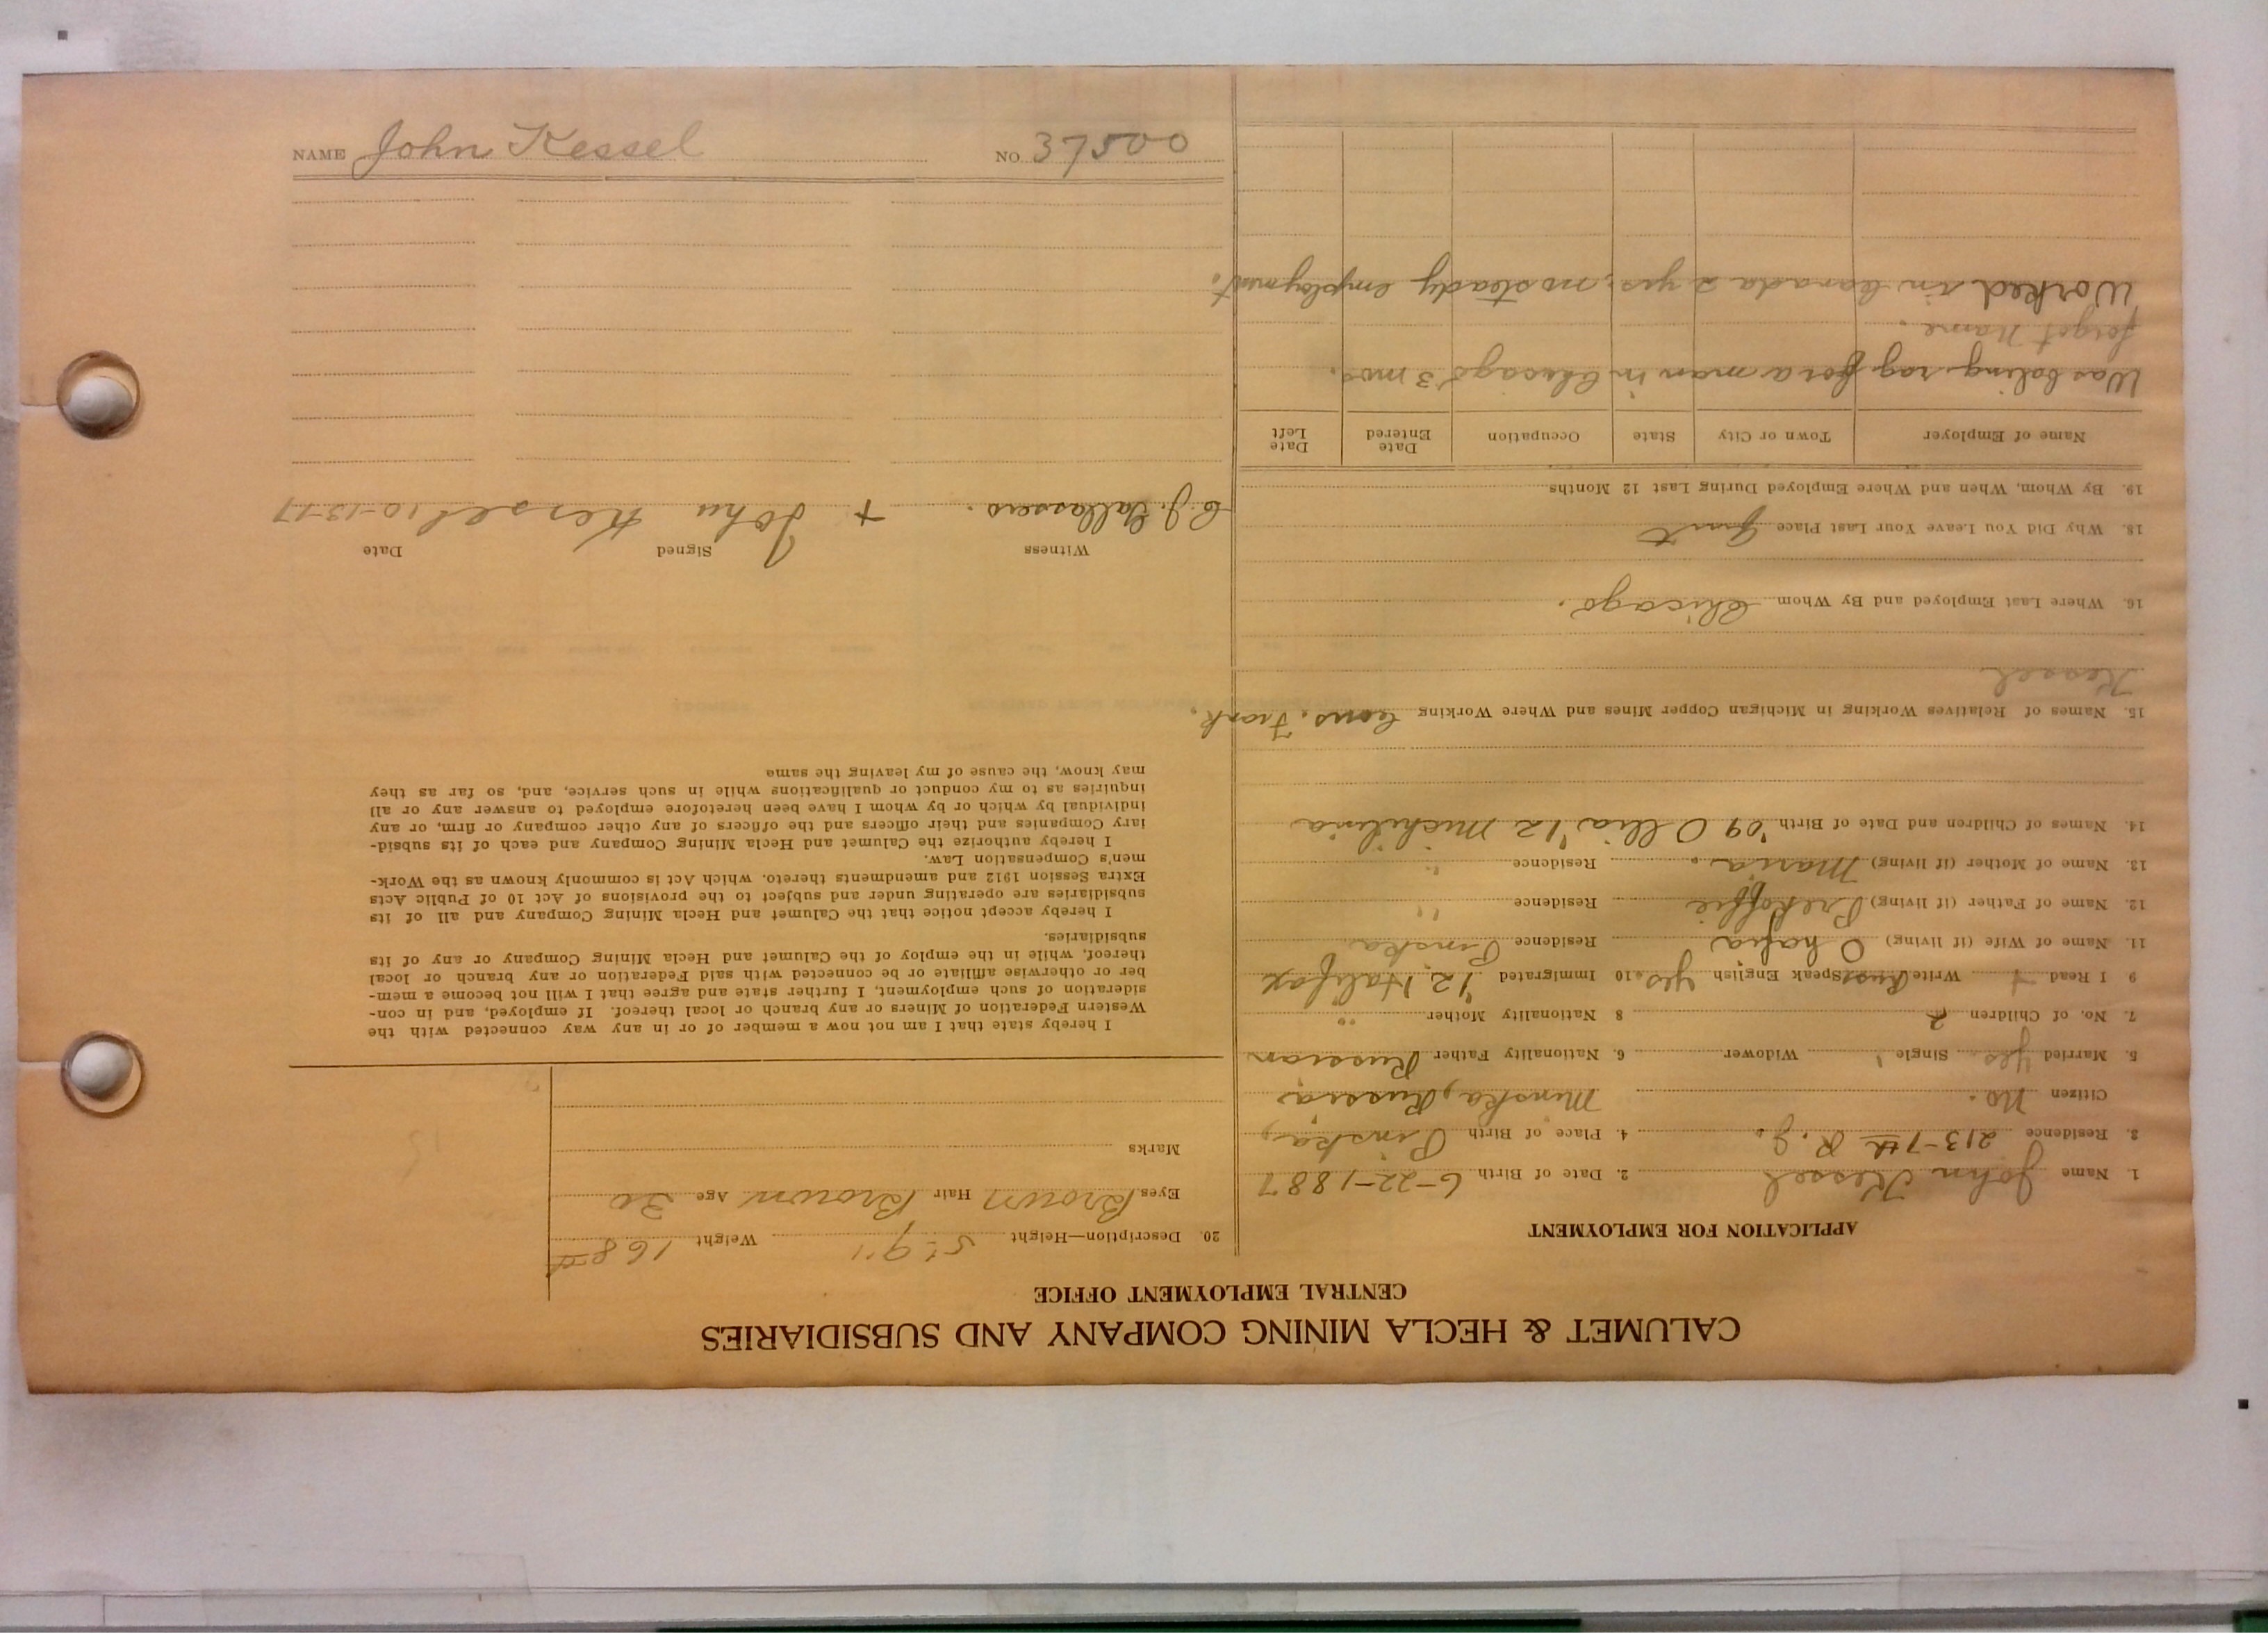 NAME John Kessel NO. 37500
CALUMET & HECLA MINING COMPANY AND SUBSIDIARIES
CENTRAL EMPLOYMENT OFFICE
APPLICATION FOR EMPLOYMENT
1. Name John Kessel 2. Date of Birth 6-22-1887
3. Residence 213-7th R.J. 4. Place of Birth Pinska,
Citizen No. Minska, Russia
5. Married Yes. Single Widower 6. Nationality Father Russian
7. No. of Children 2 8 Nationality Mother "
9 I Read + Write Russ Speak English Yes. 10 Immigrated '12. Halifax
11. Name of Wife (if living) Ohafia Residence Pinska
12. Name of Father (if living) Prekoffie Residence "
13. Name of Mother (if living) Maria. Residence "
14. Names of Children and Date of Birth '09 Ollia '12 Michilina
15. Names of Relatives Working in Michigan Copper Mines and Where Working Cous. Frank.
Kessel
16. Where Last Employed and By Whom Chicago.
18. Why Did You Leave Your Last Place Quit
19. By Whom, When and Where Employed During Last 12 Months
Name of Employer Town or City State Occupation Date Entered Date Left
Was baling rag for a man in Chicago 3 mos.
forgot Name.
Worked in Canada 2 yrs, no steady employment.
20. Description—Height 5'-9" Weight 168#
Eyes Brown Hair Brown Age 30
Marks
I hereby state that I am not now a member of or in any way connected with the
Western Federation of Miners or any branch or local thereof. If employed, and in con-
sideration of such employment, I further state and agree that I will not become a mem-
ber or otherwise affiliate or be connected with said Federation or any branch or local
thereof, while in the employ of the Calumet and Hecla Mining Company or any of its
subsidiaries.
I hereby accept notice that the Calumet and Hecla Mining Company and all of its
subsidiaries are operating under and subject to the provisions of Act 10 of Public Acts
Extra Session 1912 and amendments thereto. which Act is commonly known as the Work-
men's Compensation Law.
I hereby authorize the Calumet and Hecla Mining Company and each of its subsid-
iary Companies and their officers and the officers of any other company or firm, or any
individual by which or by whom I have been heretofore employed to answer any or all
inquiries as to my conduct or qualifications while in such service, and, so far as they
may know, the cause of my leaving the same
Witness Signed Date
C. J. + John Kessel 10-13-17